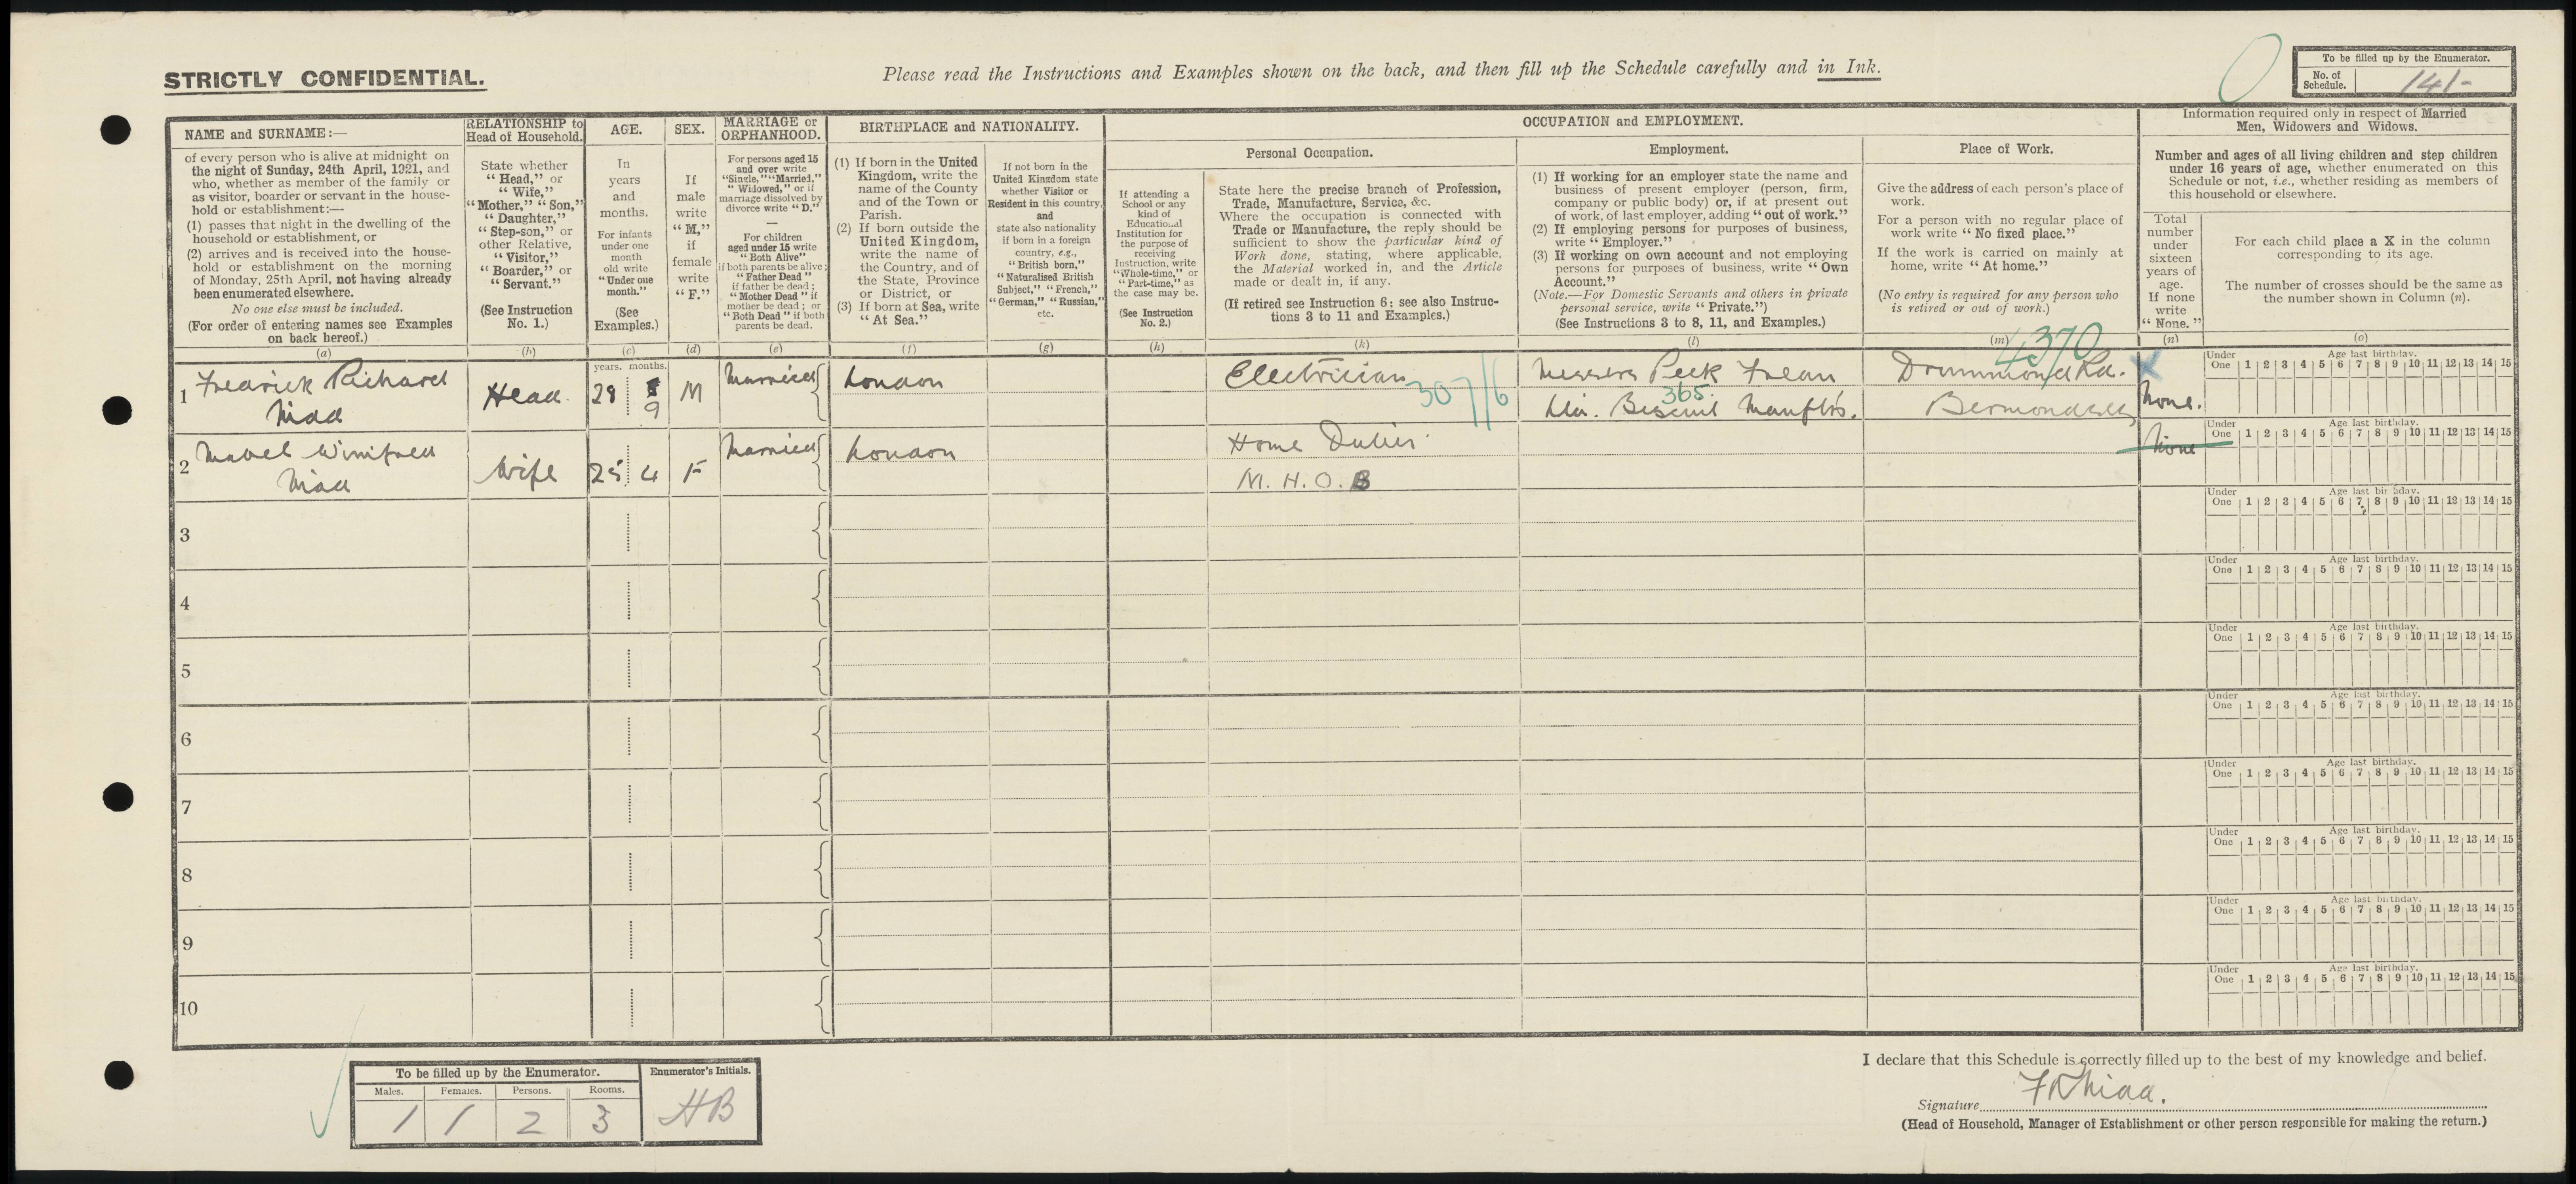 STRICTLY CONFIDENTIAL.
Please read the Instructions and Examples shown on the back, and then fill up the Schedule carefully and in Ink.
To be filled up by the Enumerator.
No. of Schedule.
141
NAME and SURNAME:—
of every person who is alive at midnight on
the night of Sunday, 24th April, 1921, and
who, whether as member of the family or
as visitor, boarder or servant in the house-
hold or establishment:—
(1) passes that night in the dwelling of the
household or establishment, or
(2) arrives and is received into the house-
hold or establishment on the morning
of Monday, 25th April, not having already
been enumerated elsewhere.
No one else must be included.
(For order of entering names see Examples
on back hereof.)
(a)
RELATIONSHIP to
Head of Household.
State whether
"Head," or
"Wife,"
"Mother," "Son,"
"Daughter,"
"Step-son," or
other Relative,
"Visitor,"
"Boarder," or
"Servant."
(See Instruction
No. 1.)
(b)
AGE.
In
years
and
months.
For infants
under one
month
old write
"Under one
month."
(See
Examples.)
(c)
SEX.
If
male
write
"M,"
if
female
write
"F."
(d)
MARRIAGE or
ORPHANHOOD.
For persons aged 15
and over write
"Single," "Married,"
"Widowed," or if
marriage dissolved by
divorce write "D."
For children
aged under 15 write
"Both Alive"
if both parents be alive;
"Father Dead"
if father be dead;
"Mother Dead" if
mother be dead; or
"Both Dead" if both
parents be dead.
(e)
BIRTHPLACE and NATIONALITY.
(1) If born in the United
Kingdom, write the
name of the County
and of the Town or
Parish.
(2) If born outside the
United Kingdom,
write the name of
the Country, and of
the State, Province
or District, or
(3) If born at Sea, write
"At Sea."
(f)
If not born in the
United Kingdom state
whether Visitor or
Resident in this country,
and
state also nationality
if born in a foreign
country, e.g.,
"British born,"
"Naturalised British
Subject," "French,"
"German," "Russian,"
etc.
(g)
OCCUPATION and EMPLOYMENT.
Personal Occupation.
If attending a
School or any
kind of
Educational
Institution for
the purpose of
receiving
Instruction, write
"Whole-time," or
"Part-time," as
the case may be.
(See Instruction
No. 2.)
(h)
State here the precise branch of Profession,
Trade, Manufacture, Service, &c.
Where the occupation is connected with
Trade or Manufacture, the reply should be
sufficient to show the particular kind of
Work done, stating, where applicable,
the Material worked in, and the Article
made or dealt in, if any.
(If retired see Instruction 6; see also Instruc-
tions 3 to 11 and Examples.)
(k)
Employment.
(1) If working for an employer state the name and
business of present employer (person, firm,
company or public body) or, if at present out
of work, of last employer, adding "out of work."
(2) If employing persons for purposes of business,
write "Employer."
(3) If working on own account and not employing
persons for purposes of business, write "Own
Account."
(Note.—For Domestic Servants and others in private
personal service, write "Private.")
(See Instructions 3 to 8, 11, and Examples.)
(l)
Place of Work.
Give the address of each person's place of
work.
For a person with no regular place of
work write "No fixed place."
If the work is carried on mainly at
home, write "At home."
(No entry is required for any person who
is retired or out of work.)
(m)
Information required only in respect of Married
Men, Widowers and Widows.
Number and ages of all living children and step children
under 16 years of age, whether enumerated on this
Schedule or not, i.e., whether residing as members of
this household or elsewhere.
Total
number
under
sixteen
years of
age.
If none
write
"None."
(n)
For each child place a X in the column
corresponding to its age.
The number of crosses should be the same as
the number shown in Column (n).
(o)
years. months.
1 Fredrick Richard Head 28 9 M Married London Electrician 307/6 Messrs Peek Frean 4370 Drummond Rd. None.
365
Ltd. Biscuit Manftrs. Bermondsey
Under One Age last birthday. 1 2 3 4 5 6 7 8 9 10 11 12 13 14 15
2 Mabel Winifred Wife 25 4 F Married London Home Duties None
M. H. O.
Under One Age last birthday. 1 2 3 4 5 6 7 8 9 10 11 12 13 14 15
3
Under One Age last birthday. 1 2 3 4 5 6 7 8 9 10 11 12 13 14 15
4
Under One Age last birthday. 1 2 3 4 5 6 7 8 9 10 11 12 13 14 15
5
Under One Age last birthday. 1 2 3 4 5 6 7 8 9 10 11 12 13 14 15
6
Under One Age last birthday. 1 2 3 4 5 6 7 8 9 10 11 12 13 14 15
7
Under One Age last birthday. 1 2 3 4 5 6 7 8 9 10 11 12 13 14 15
8
Under One Age last birthday. 1 2 3 4 5 6 7 8 9 10 11 12 13 14 15
9
Under One Age last birthday. 1 2 3 4 5 6 7 8 9 10 11 12 13 14 15
10
Under One Age last birthday. 1 2 3 4 5 6 7 8 9 10 11 12 13 14 15
To be filled up by the Enumerator.
Males. Females. Persons. Rooms.
1 1 2 3
Enumerator's Initials.
HB
I declare that this Schedule is correctly filled up to the best of my knowledge and belief.
Signature
(Head of Household, Manager of Establishment or other person responsible for making the return.)